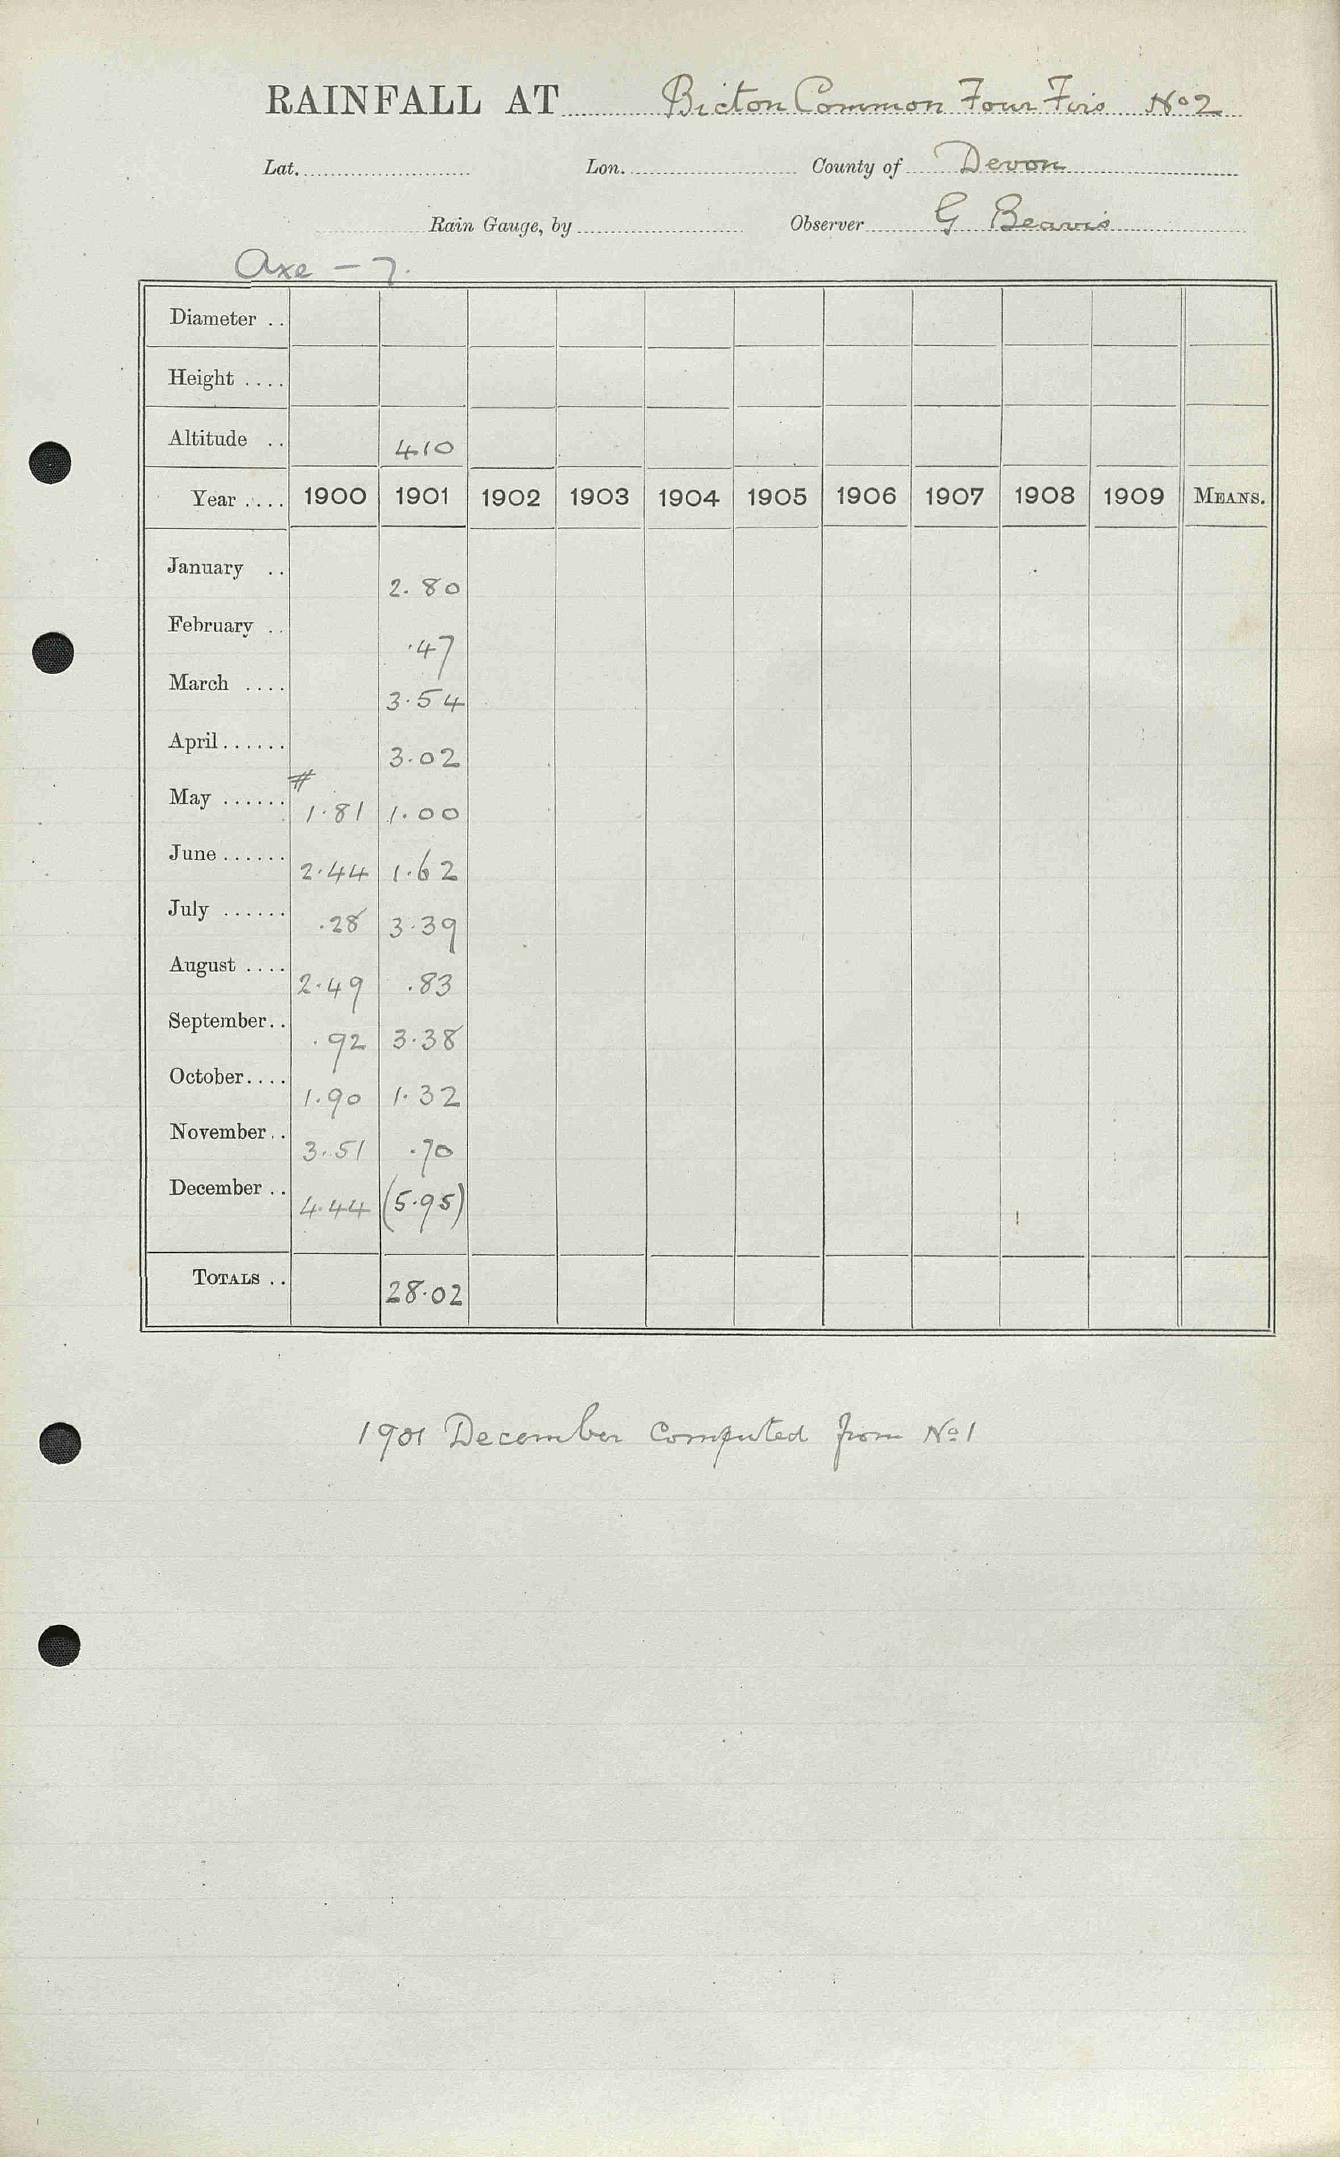 RAINFALL AT Bicton Common Four Firs No 2
Lat. Lon. County of Devon
Rain Gauge, by Observer G Beavis
Axe - 7.
Diameter ..
Height ....
Altitude .. 410
Year .... 1900 1901 1902 1903 1904 1905 1906 1907 1908 1909 MEANS.
January .. 2.80
February .. .47
March .... 3.54
April...... 3.02
May ...... # 1.81 1.00
June ...... 2.44 1.62
July ...... .28 3.39
August .... 2.49 .83
September.. .92 3.38
October.... 1.90 1.32
November.. 3.51 .70
December .. 4.44 (5.95)
TOTALS .. 28.02
1901 December Computed from No 1